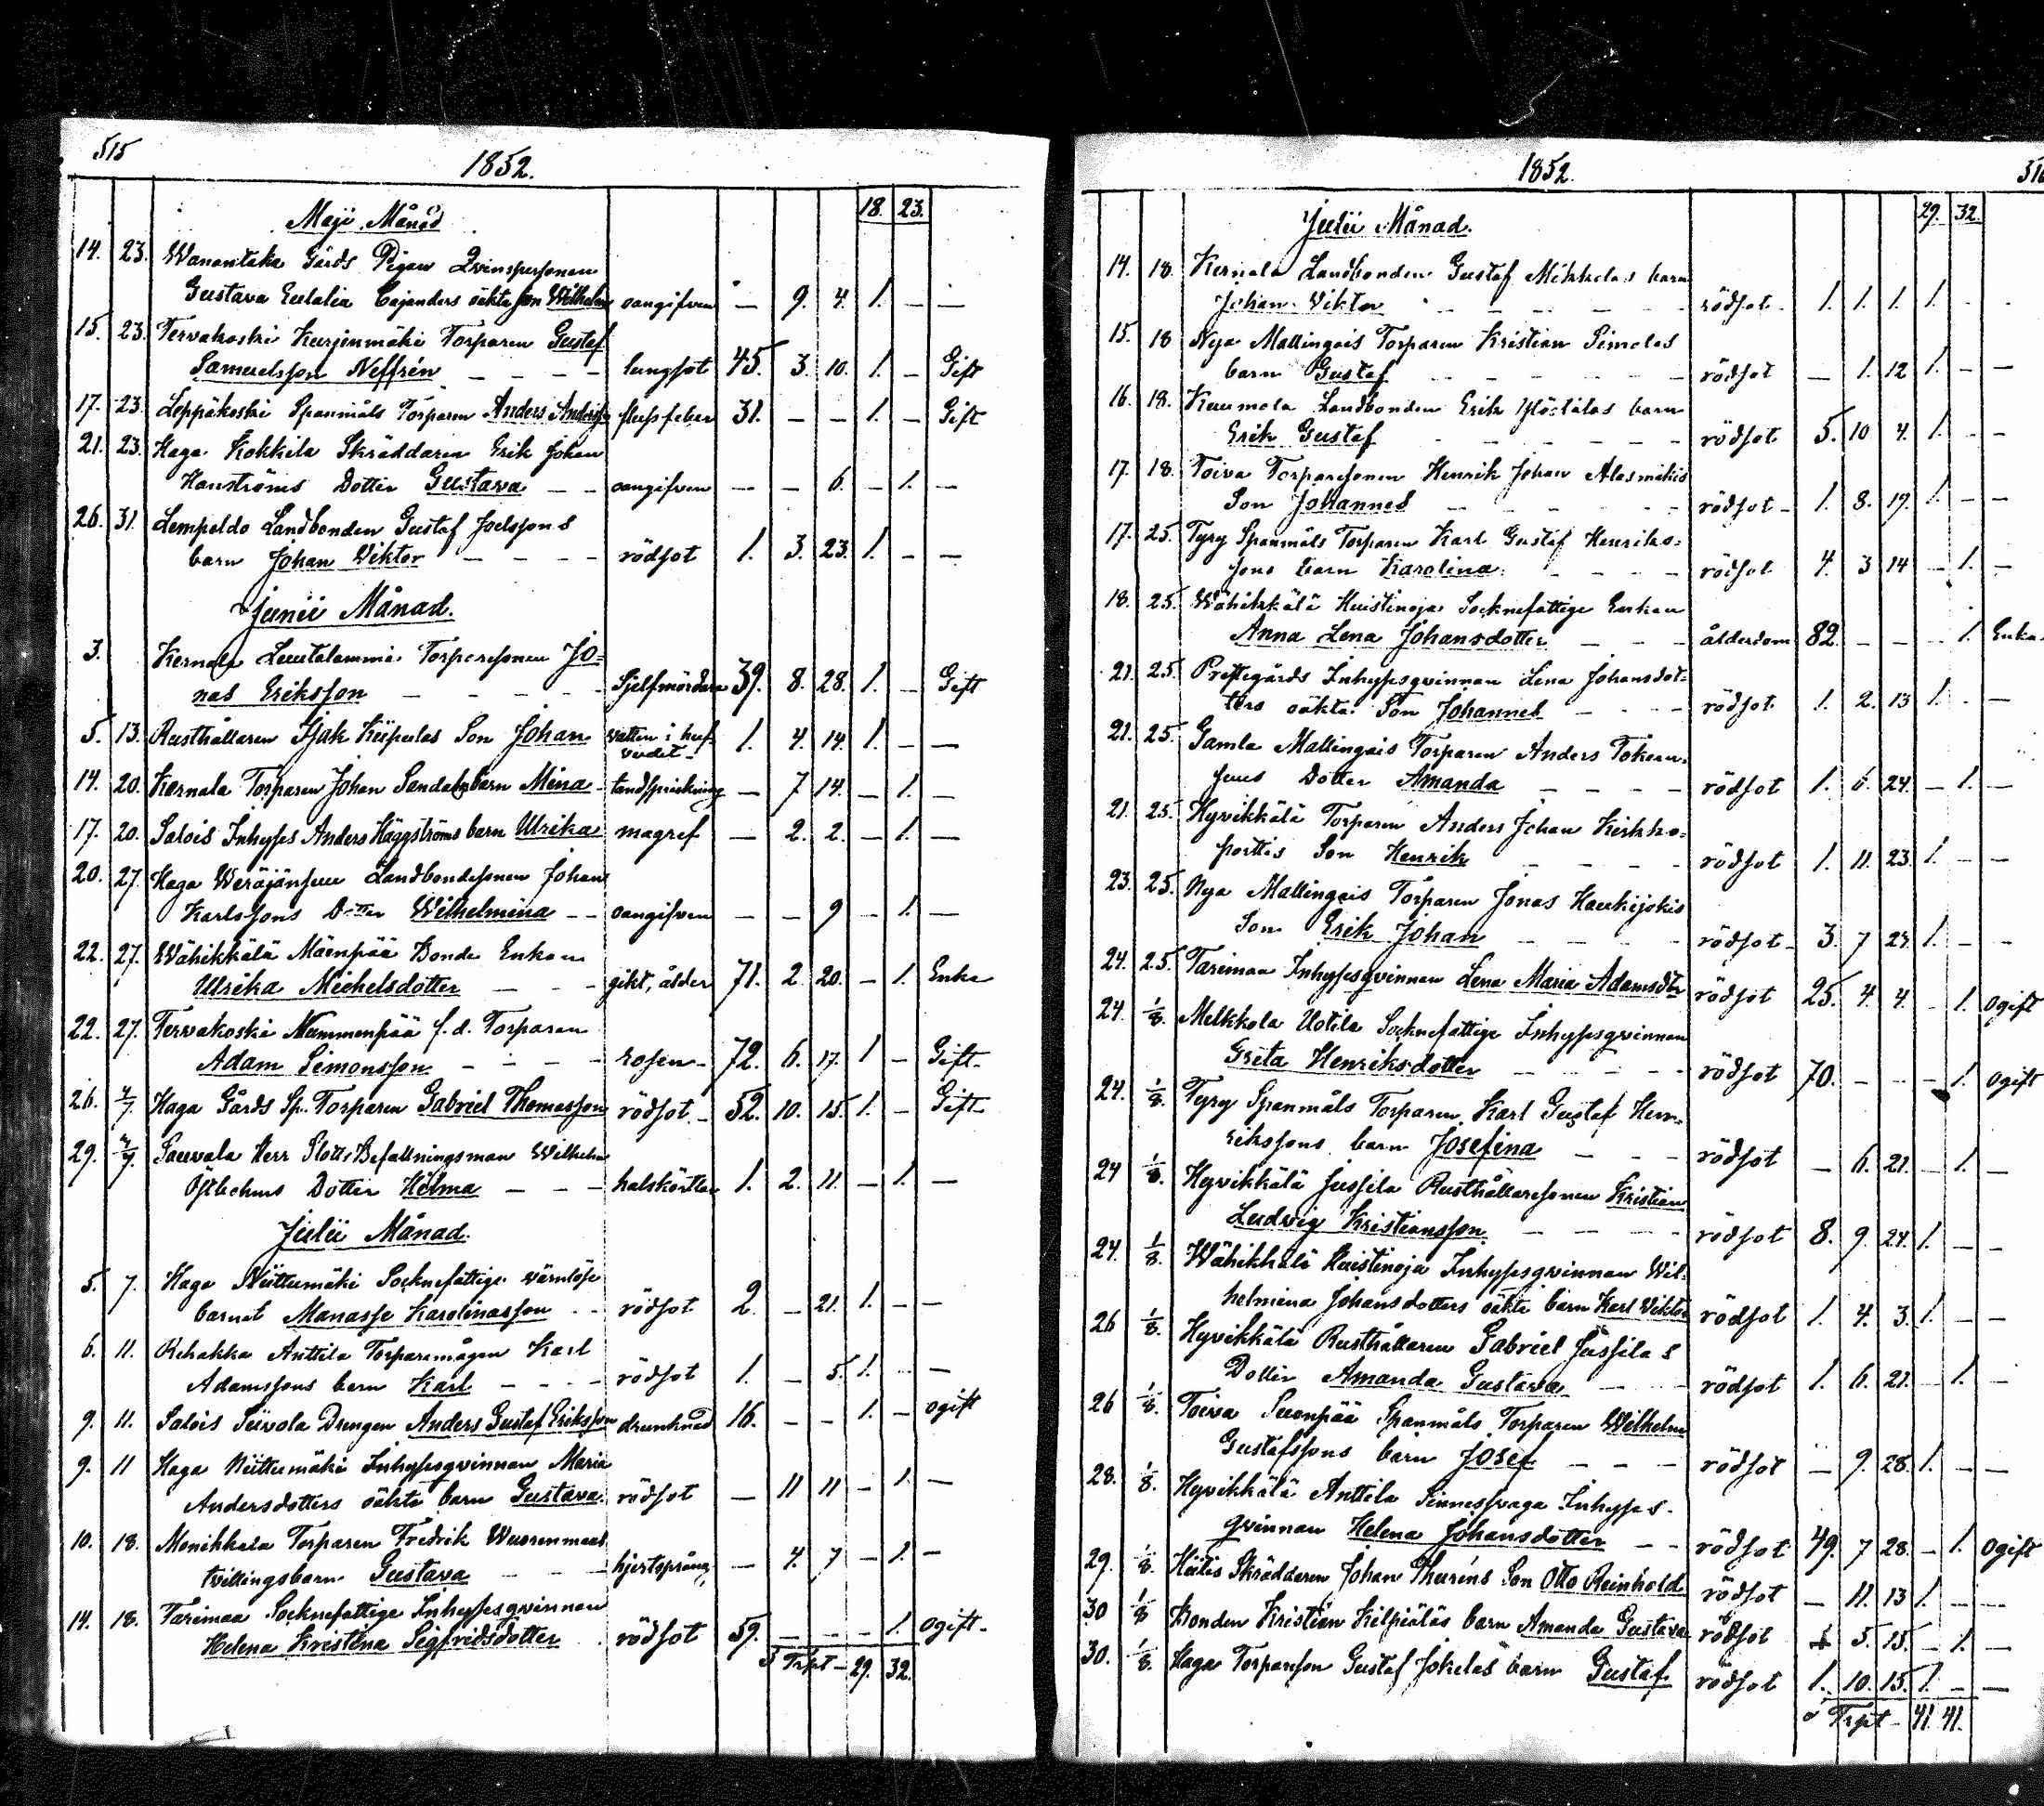 515
1852.
18. 23.
Maji Månad
14. 23. Wanantaka Gårds Pigan Qvinspersonen
Gustava Eulalia Cajanders oäkta son Wilhelm oangifven — 9. 4. 1. — —
15. 23. Tervakoski Kurjenmäki Torparen Gustaf
Samuelsson Neffrén — — — — lungsot 45. 3. 10. 1. — Gift
17. 23. Leppäkoski Spanmåls Torparen Anders Andersson flussfeber 31. — — 1. — Gift
21. 23. Haga Kokkila Skräddaren Erik Johan
Hanströms Dotter Gustava — — oangifven — — 6. — 1. —
26. 31. Lempeldo Landbonden Gustaf Joelssons
barn Johan Viktor — — — — rödsot 1. 3. 23. 1. — —
Junii Månad.
3. Kernala Luutalammi Torparesonen Jo=
nas Eriksson — — — — — Sjelfmördare 39. 8. 28. 1. — Gift
5. 13. Rusthållaren Isak Kiipulas Son Johan vatten i huf-
vudet- 1. 4. 14. 1. — —
14. 20. Kernala Torparen Johan barn Mina - tandsprickning — 7 14. — 1. —
17. 20. Salois Inhyses Anders Häggströms barn Ulrika magref — 2. 2. — 1. —
20. 27. Haga Weräjänsuu Landbondesonen Johan
Karlssons Dotter Wilhelmina — — oangifven — — 9 — 1. —
22. 27. Wähikkälä Mäenpää Bonde Enkan
Ulrika Michelsdotter — — - gikt, ålder 71. 2 20. — 1. Enka
22. 27. Tervakoski Nummenpää f.d. Torparen
Adam Simonsson - — — — rosen - 72. 6. 17. 1 — Gift-
26. 4/7. Haga Gårds Sp. Torparen Gabriel Thomasson rödsot - 52. 10. 15. 1. — Gift-
29. 4/7. Sauvala Herr Slotts Befallningsman Wilhelm
Dotter Hilma — — — halskörtlar 1. 2. 11. — 1. —
Julii Månad.
5. 7. Haga Niittumäki Socknefattige värnlöse
barnet Manasse Karolinasson - - rödsot 2. — 21. 1. — —
6. 11. Rehakka Anttila Torparemågen Karl
Adamssons barn Karl — - - - rödsot 1. — 5. 1. — —
9. 11. Salois Siivola Drengen Anders Gustaf Eriksson drunknad 16. — — 1. — ogift
9. 11 Haga Niittumäki Inhysesqvinnan Maria
Andersdotters oäkta barn Gustava. rödsot — 11 11 — 1. —
10. 18. Monikkala Torparen Fredrik Wuorenmaas
tvillingsbarn Gustava — — — hjertsprång — 4. 7 — 1. —
14. 18. Tarimaa Socknefattige Inhysesqvinnan
Helena Kristina Sigfridsdotter rödsot 59. — — — 1. ogift-
Trpt — 29. 32.
1852.
516
29. 32.
Julii Månad.
14. 18. Kernala Landbonden Gustaf Mikkolas barn
Johan Viktor — — — — rödsot - 1. 1. 1. 1. - -
15. 18 Nya Mallingais Torparen Kristian Simolas
barn Gustaf — — — — rödsot — 1. 12 1. — —
16. 18. Kuumola Landbonden Erik barn
Erik Gustaf — — — — rödsot 5. 10 4. 1. - —
17. 18. Toiva Torparesonen Henrik Johan Alasmäkis
Son Johannes — — — — rödsot - 1. 8. 19. 1. — —
17. 25. Tyry Spanmåls Torparen Karl Gustaf Henriks=
sons barn Karolina. — — — rödsot 4. 3 14 — 1. —
18. 25. Wähikkälä Huistinoja Socknefattige Enkan
Anna Lena Johansdotter — — - ålderdom 82. — — - 1. Enka
21. 25. Prestegårds Inhysesqvinnan Lena Johansdot=
ters oäkta Son Johannes — - - rödsot 1. 2. 13 1. . —
21. 25. Gamla Mallingais Torparen Anders
Dotter Amanda — — — — rödsot 1. 6. 24. — 1. —
21. 25. Hyvikkälä Torparen Anders Johan Kirkko=
porttis Son Henrik — — — — rödsot 1. 11. 23. 1. — —
23. 25. Nya Mallingais Torparen Jonas Haukijokis
Son Erik Johan — — — - rödsot - 3. 7 1. — —
24. 25. Tarimaa Inhysesqvinnan Lena Maria Adamsdtr rödsot 25. 4. 4. - 1. Ogift
24. 1/8. Melkkola Uotila Socknefattige Inhysesqvinnan
Greta Henriksdotter — — — — rödsot 70. — — - 1. Ogift
24. 1/8. Tyry Spanmåls Torparen Karl Gustaf Hen=
rikssons barn Josefina — — — rödsot — 6. 21. — 1. —
24 1/8. Hyvikkälä Jussila Rusthållaresonen Kristian
Ludvig Kristiansson — — — rödsot 8. 9. 24. 1. — —
24. 1/8. Wähikkälä Huistinoja Inhysesqvinnan Wil=
helmina Johansdotters oäkta barn Karl Viktor rödsot 1. 4. 3. 1. — —
26 1/8. Hyvikkälä Rusthållaren Gabriel Jussilas
Dotter Amanda Gustava — — rödsot 1. 6. 21. — 1. —
26 1/8. Toiva Suonpää Spanmåls Torparen Wilhelm
Gustafssons barn Josef — — — rödsot — 9. 28. 1. — —
28. 1/8. Hyvikkälä Anttila Sinnessvaga Inhyses-
qvinnan Helena Johansdotter — — rödsot 49. 7 28. — 1. Ogift
29. 1/8. Hiitis Skräddaren Johan Thuréns Son Otto Reinhold rödsot — 11. 13 1. — —
30 1/8 Bonden Kristian Kilpiäläs barn Amanda Gustava rödsot 5. 15. — 1. —
30. 1/8. Haga Torparson Gustaf Jokelas barn Gustaf. rödsot 1. 10. 15. 1. — —
Trpt — 41. 41.